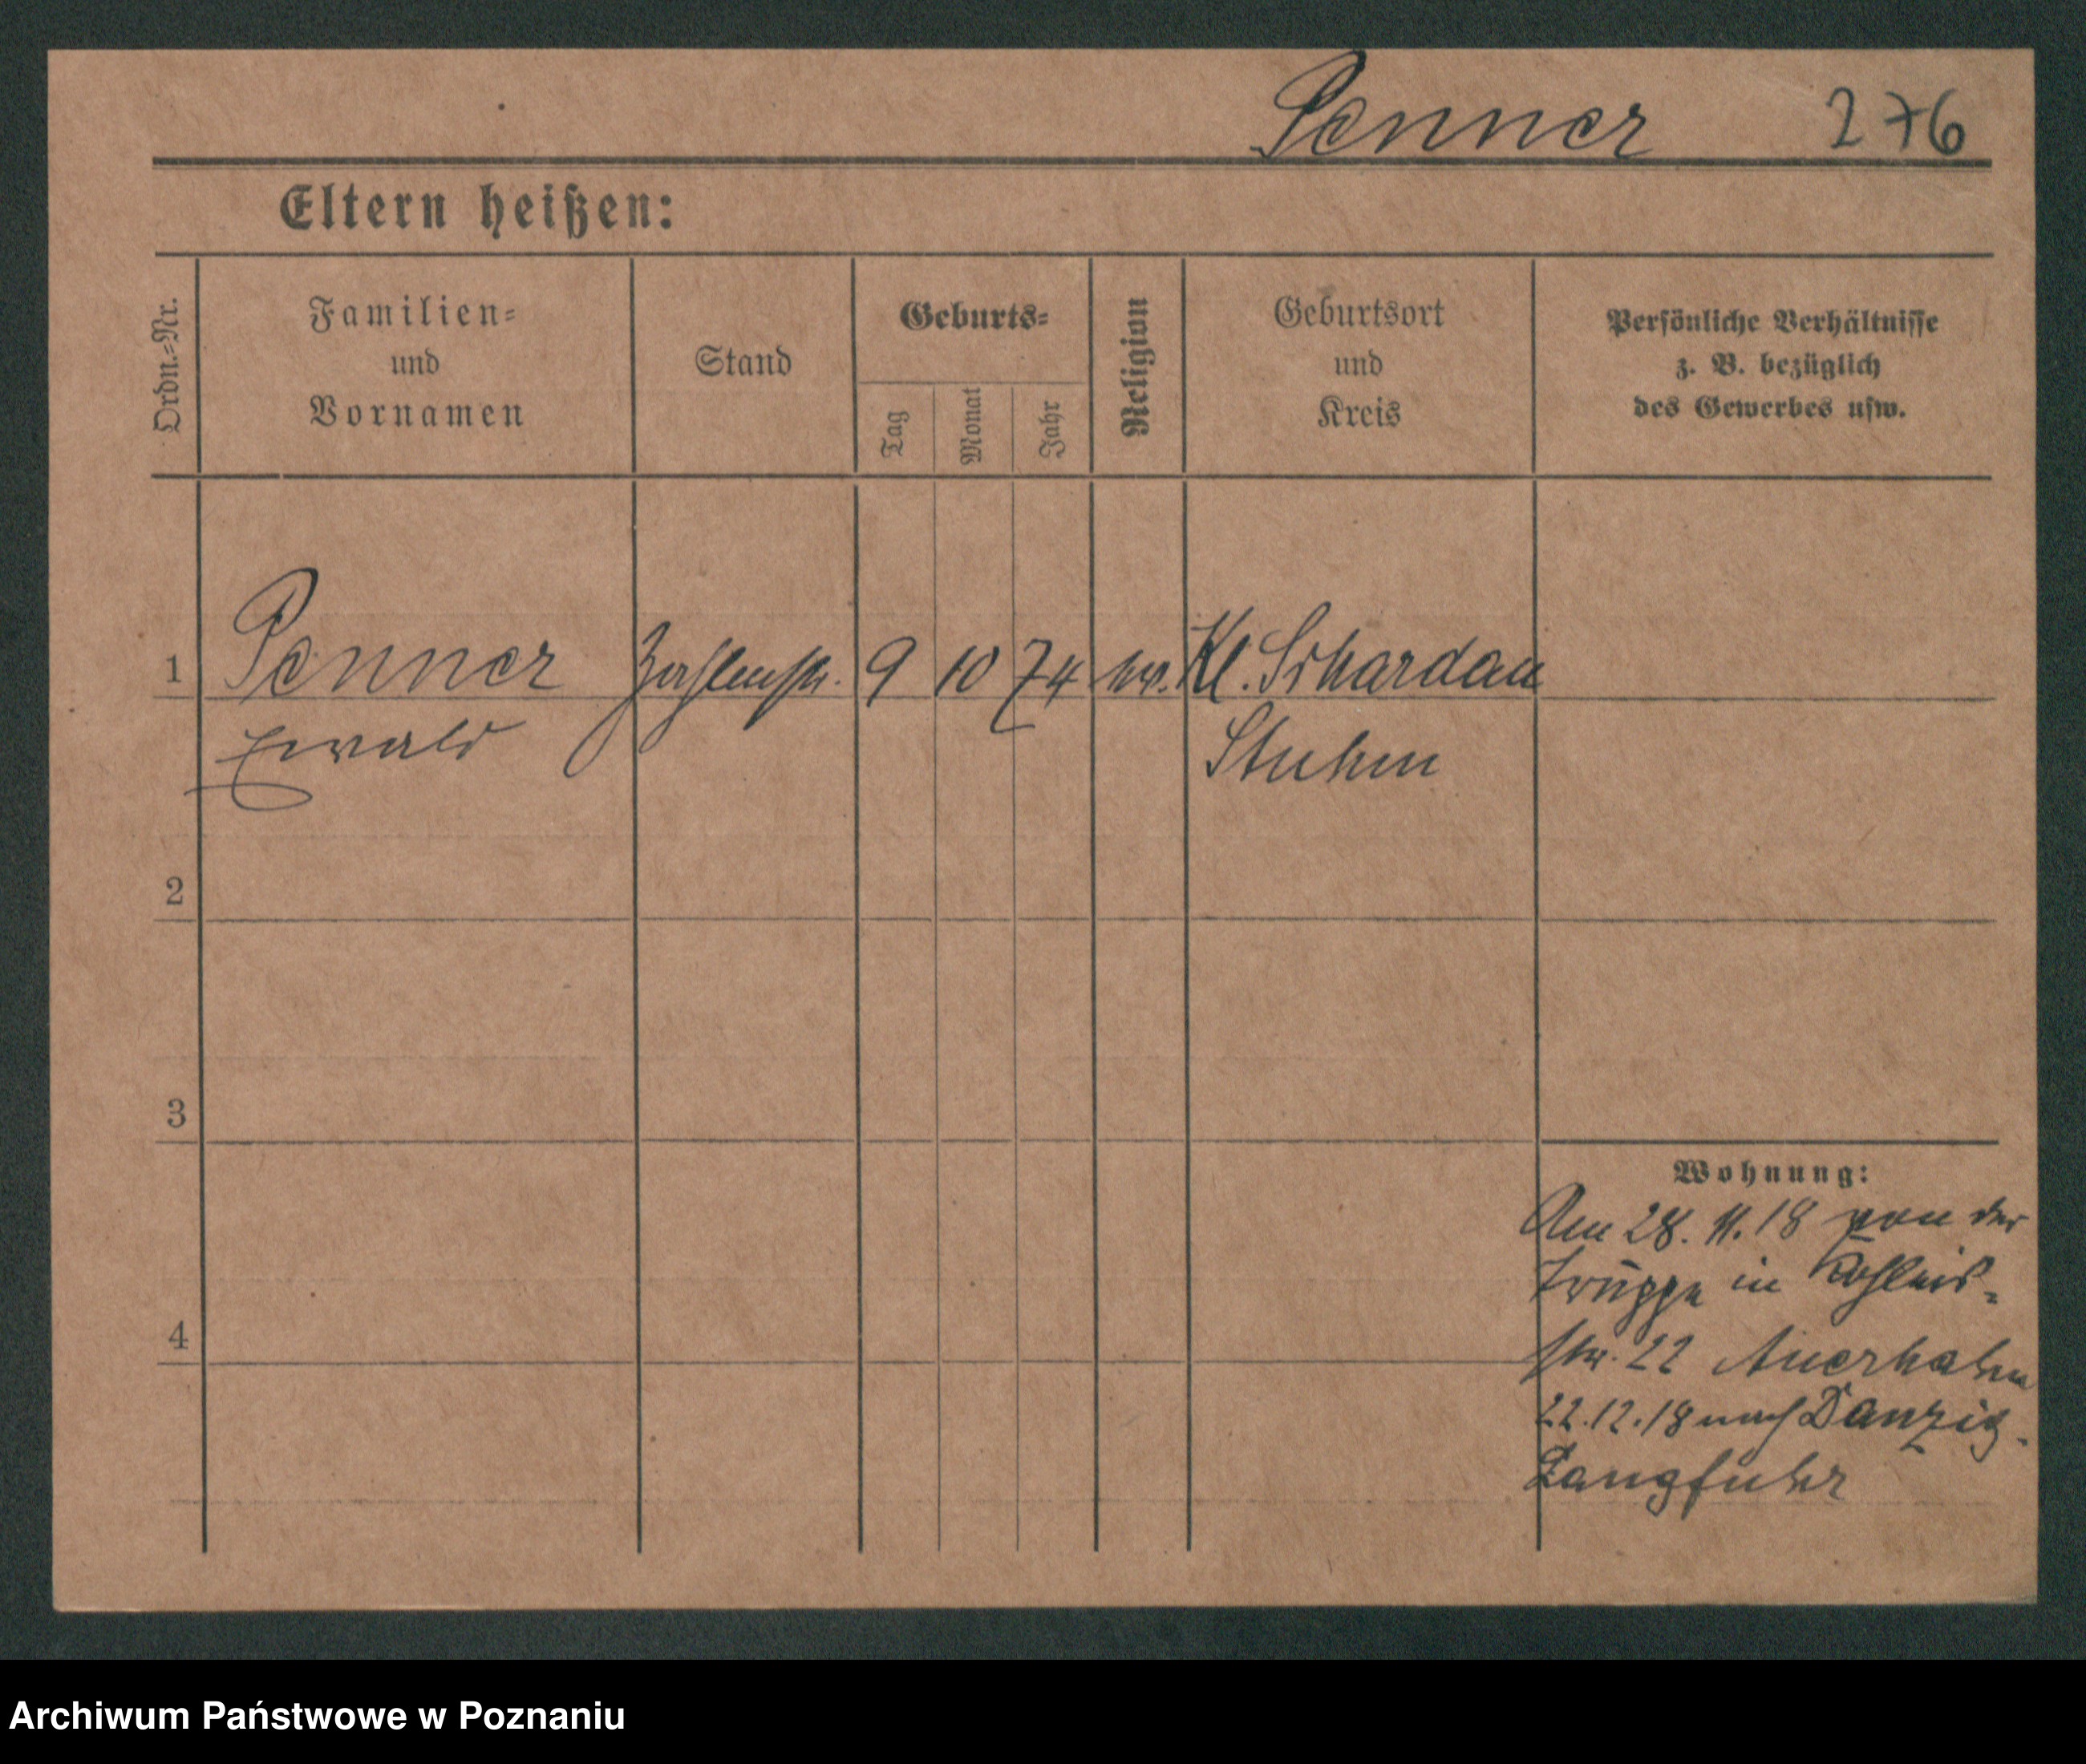 Penner 276
Eltern heißen:
Ordn.-Nr.
Familien- und Vornamen
Stand
Geburts-
Tag
Monat
Jahr
Religion
Geburtsort und Kreis
Persönliche Verhältnisse z. B. bezüglich des Gewerbes usw.
1 Penner 9 10 74 Kl. Schardau
Ewald Stuhm
2
3
Wohnung:
Am 28. 11. 18 von der
Truppe in
4
str. 22 Auerhahn
22.12.18 nach Danzig-
Langfuhr
Archiwum Państwowe w Poznaniu